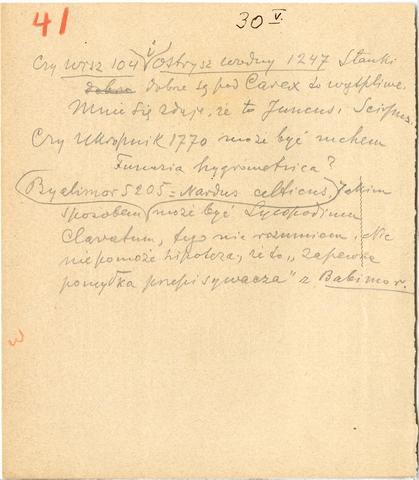 41
30 V.
Czy Wisz 104 i Ostrysz wodny 1247 Slanki
dobrze dobrze są pod Carex to wątpliwe.
Mnie się zdaje, że to Juncus, Scirpus.
Czy Ukropnik 1770 może być mchem
Funaria hygrometrica?
Byalimor 5205 = Nardus celticus, Jakim
sposobem może być Lycopodium
clavatum, tego nie rozumiem. Nic
nie pomoże hipoteza, że to "zapewne
pomyłka przepisywacza" z Babimor.
w